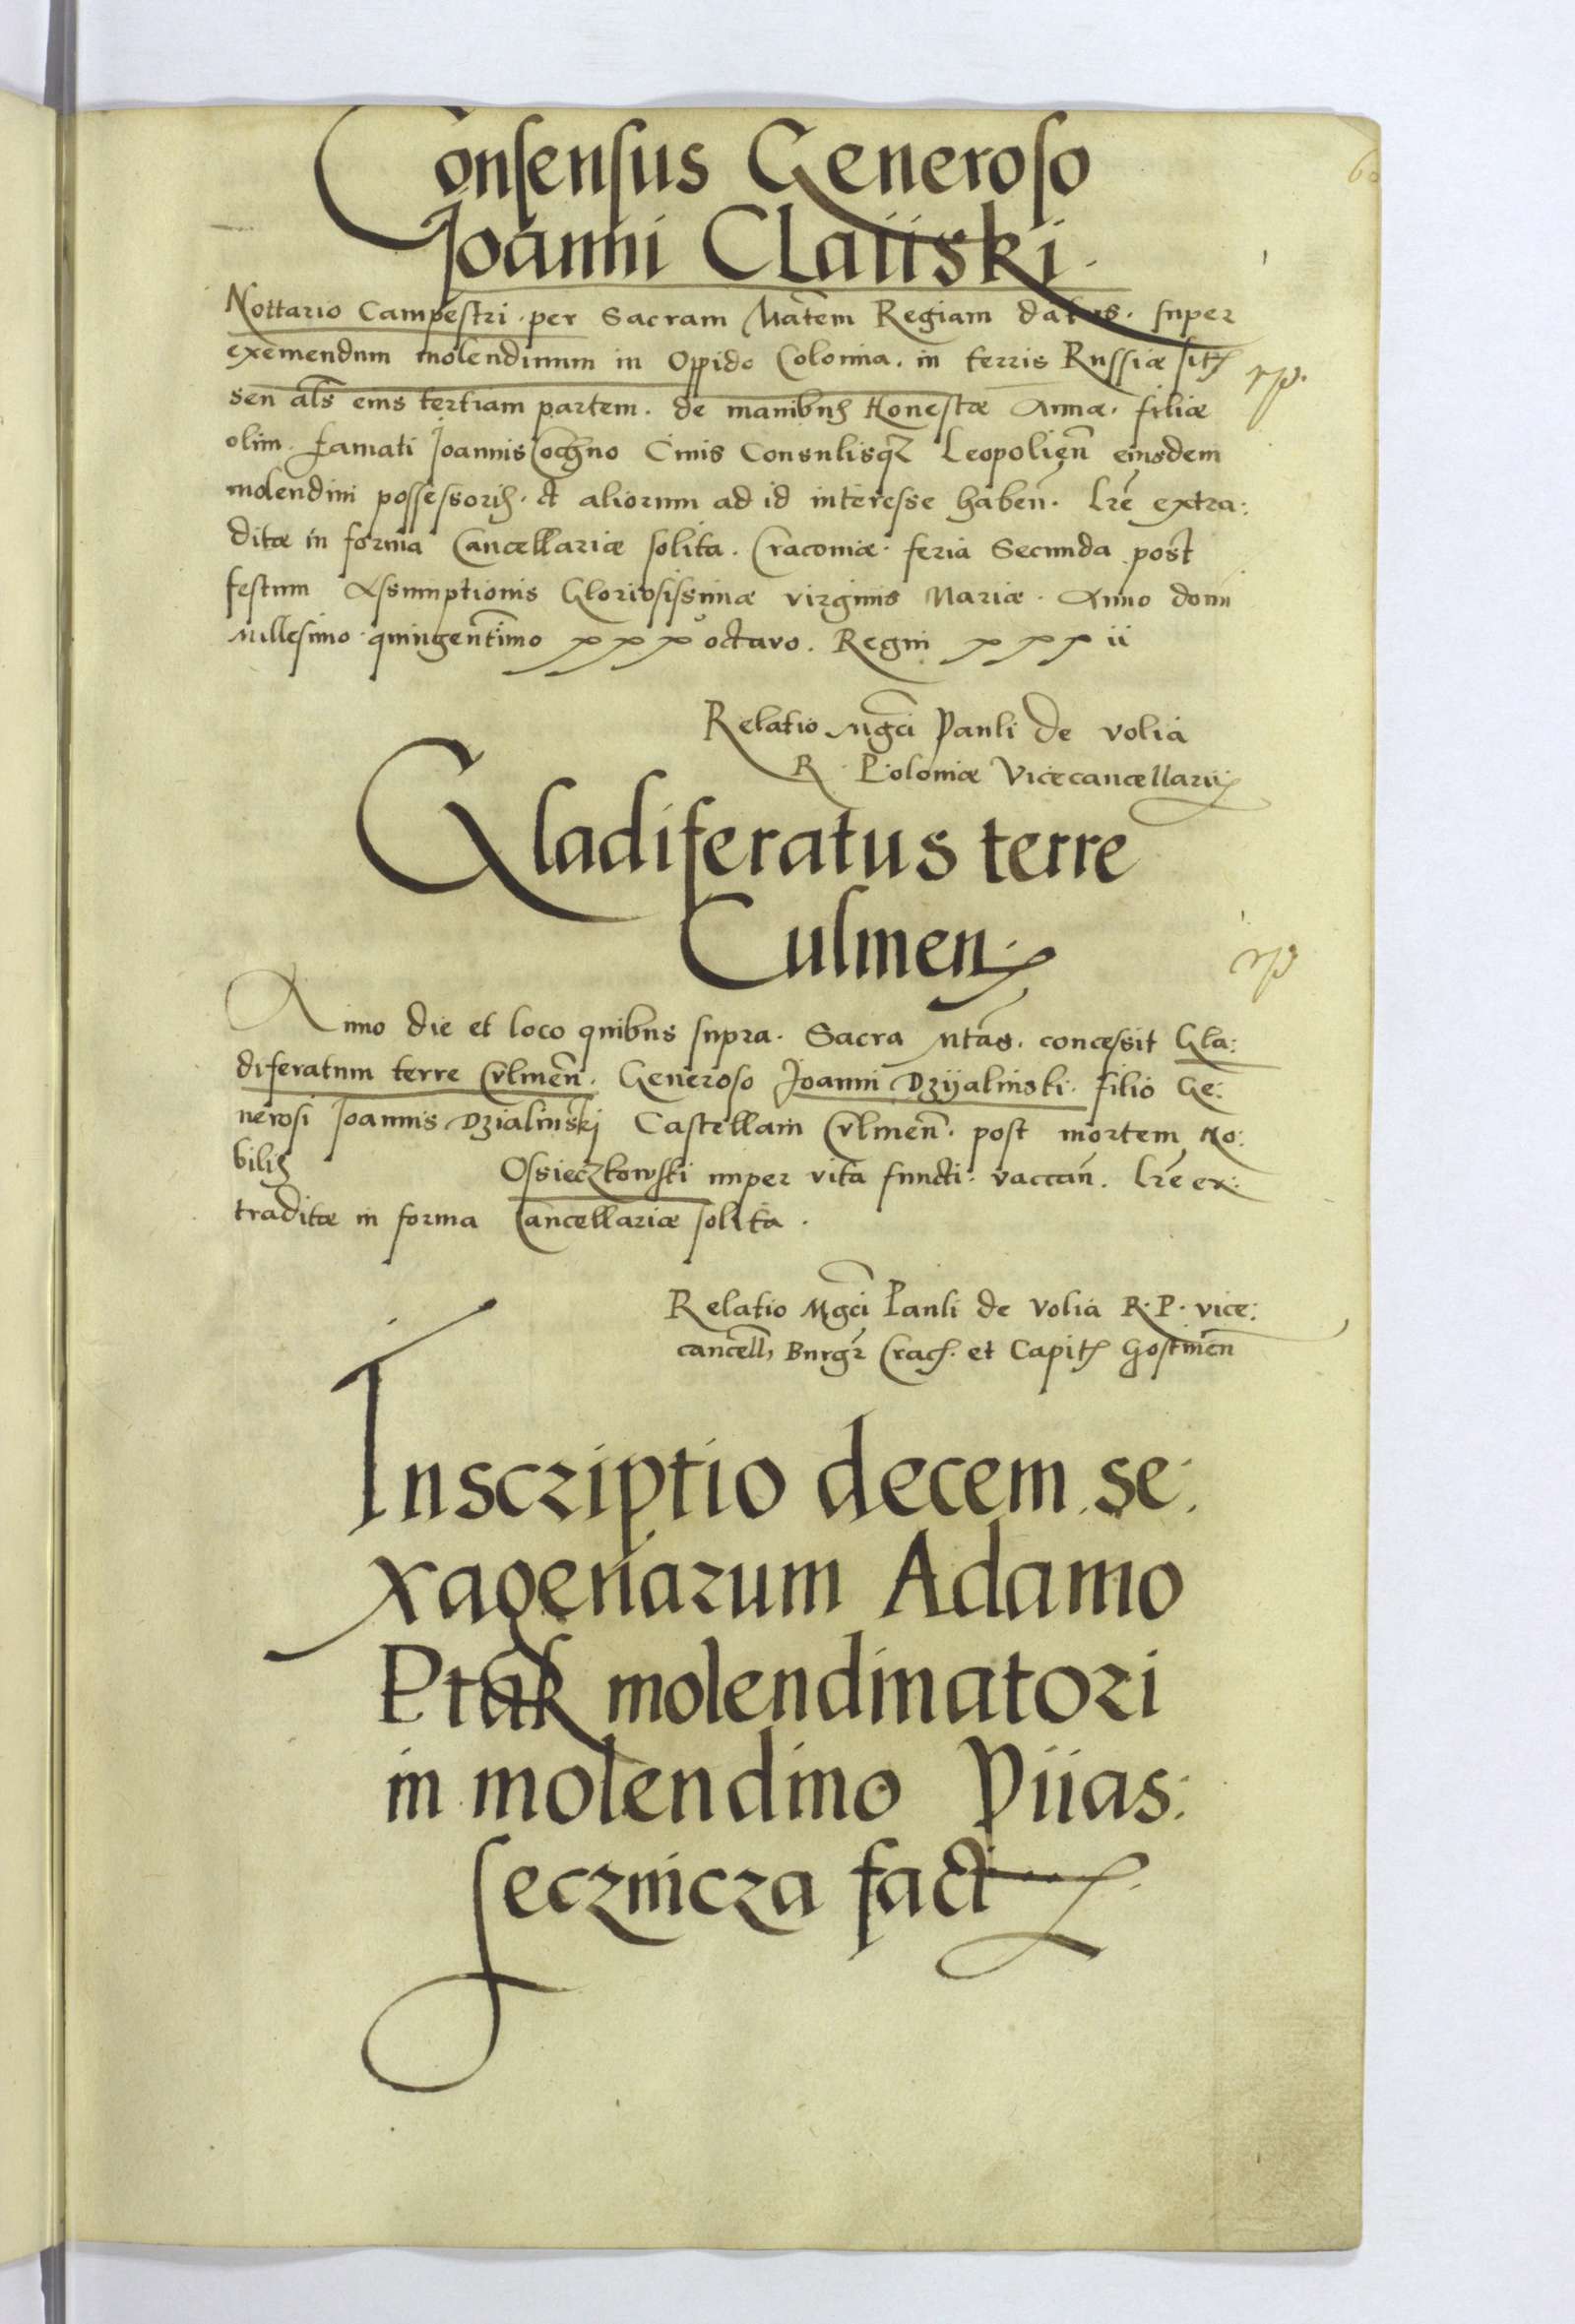 Consensus Generoso
Joanni Claiiski.
Nottario Campestri . per Sacram Matem Regiam datus . super
exemendum molendinum in Oppido Colonia . in terris Russiæ sit
seu als eius tertiam partem . de manibus Honestæ Annæ . filiæ
olim . famati Joannis Civis Consulisqz Leopolien eiusdem
molendini possessoris . et aliorum ad id interesse haben . Lre extra:
ditæ in forma Cancellariæ solita . Cracoviæ . feria Secunda post
festum Assumptionis Gloriosissimæ virginis Mariæ . Anno domi
Millesimo quingentimo xxx octavo . Regni xxx ii
Relatio Mgci Pauli de volia
R Poloniæ Vicecancellarij
Gladiferatus terre
Culmen.
Anno die et loco quibus supra . Sacra Mtas . concessit Gla:
diferatum terre Culmen . Generoso Joanni Dzijalinski . filio Ge:
nerosi Joannis Dzialinskj Castellani Culmen . post mortem No:
bilis Ossieczkowski nuper vita functi . vaccan . Lre ex:
traditæ in forma Cancellariæ solita .
Relatio Mgci Pauli de Volia R . P . vice:
cancell, Burgr Crac . et Capit Gostinen
Inscriptio decem se:
xagenarum Adamo
Ptak molendinatori
in molendino Piias:
secznicza fact